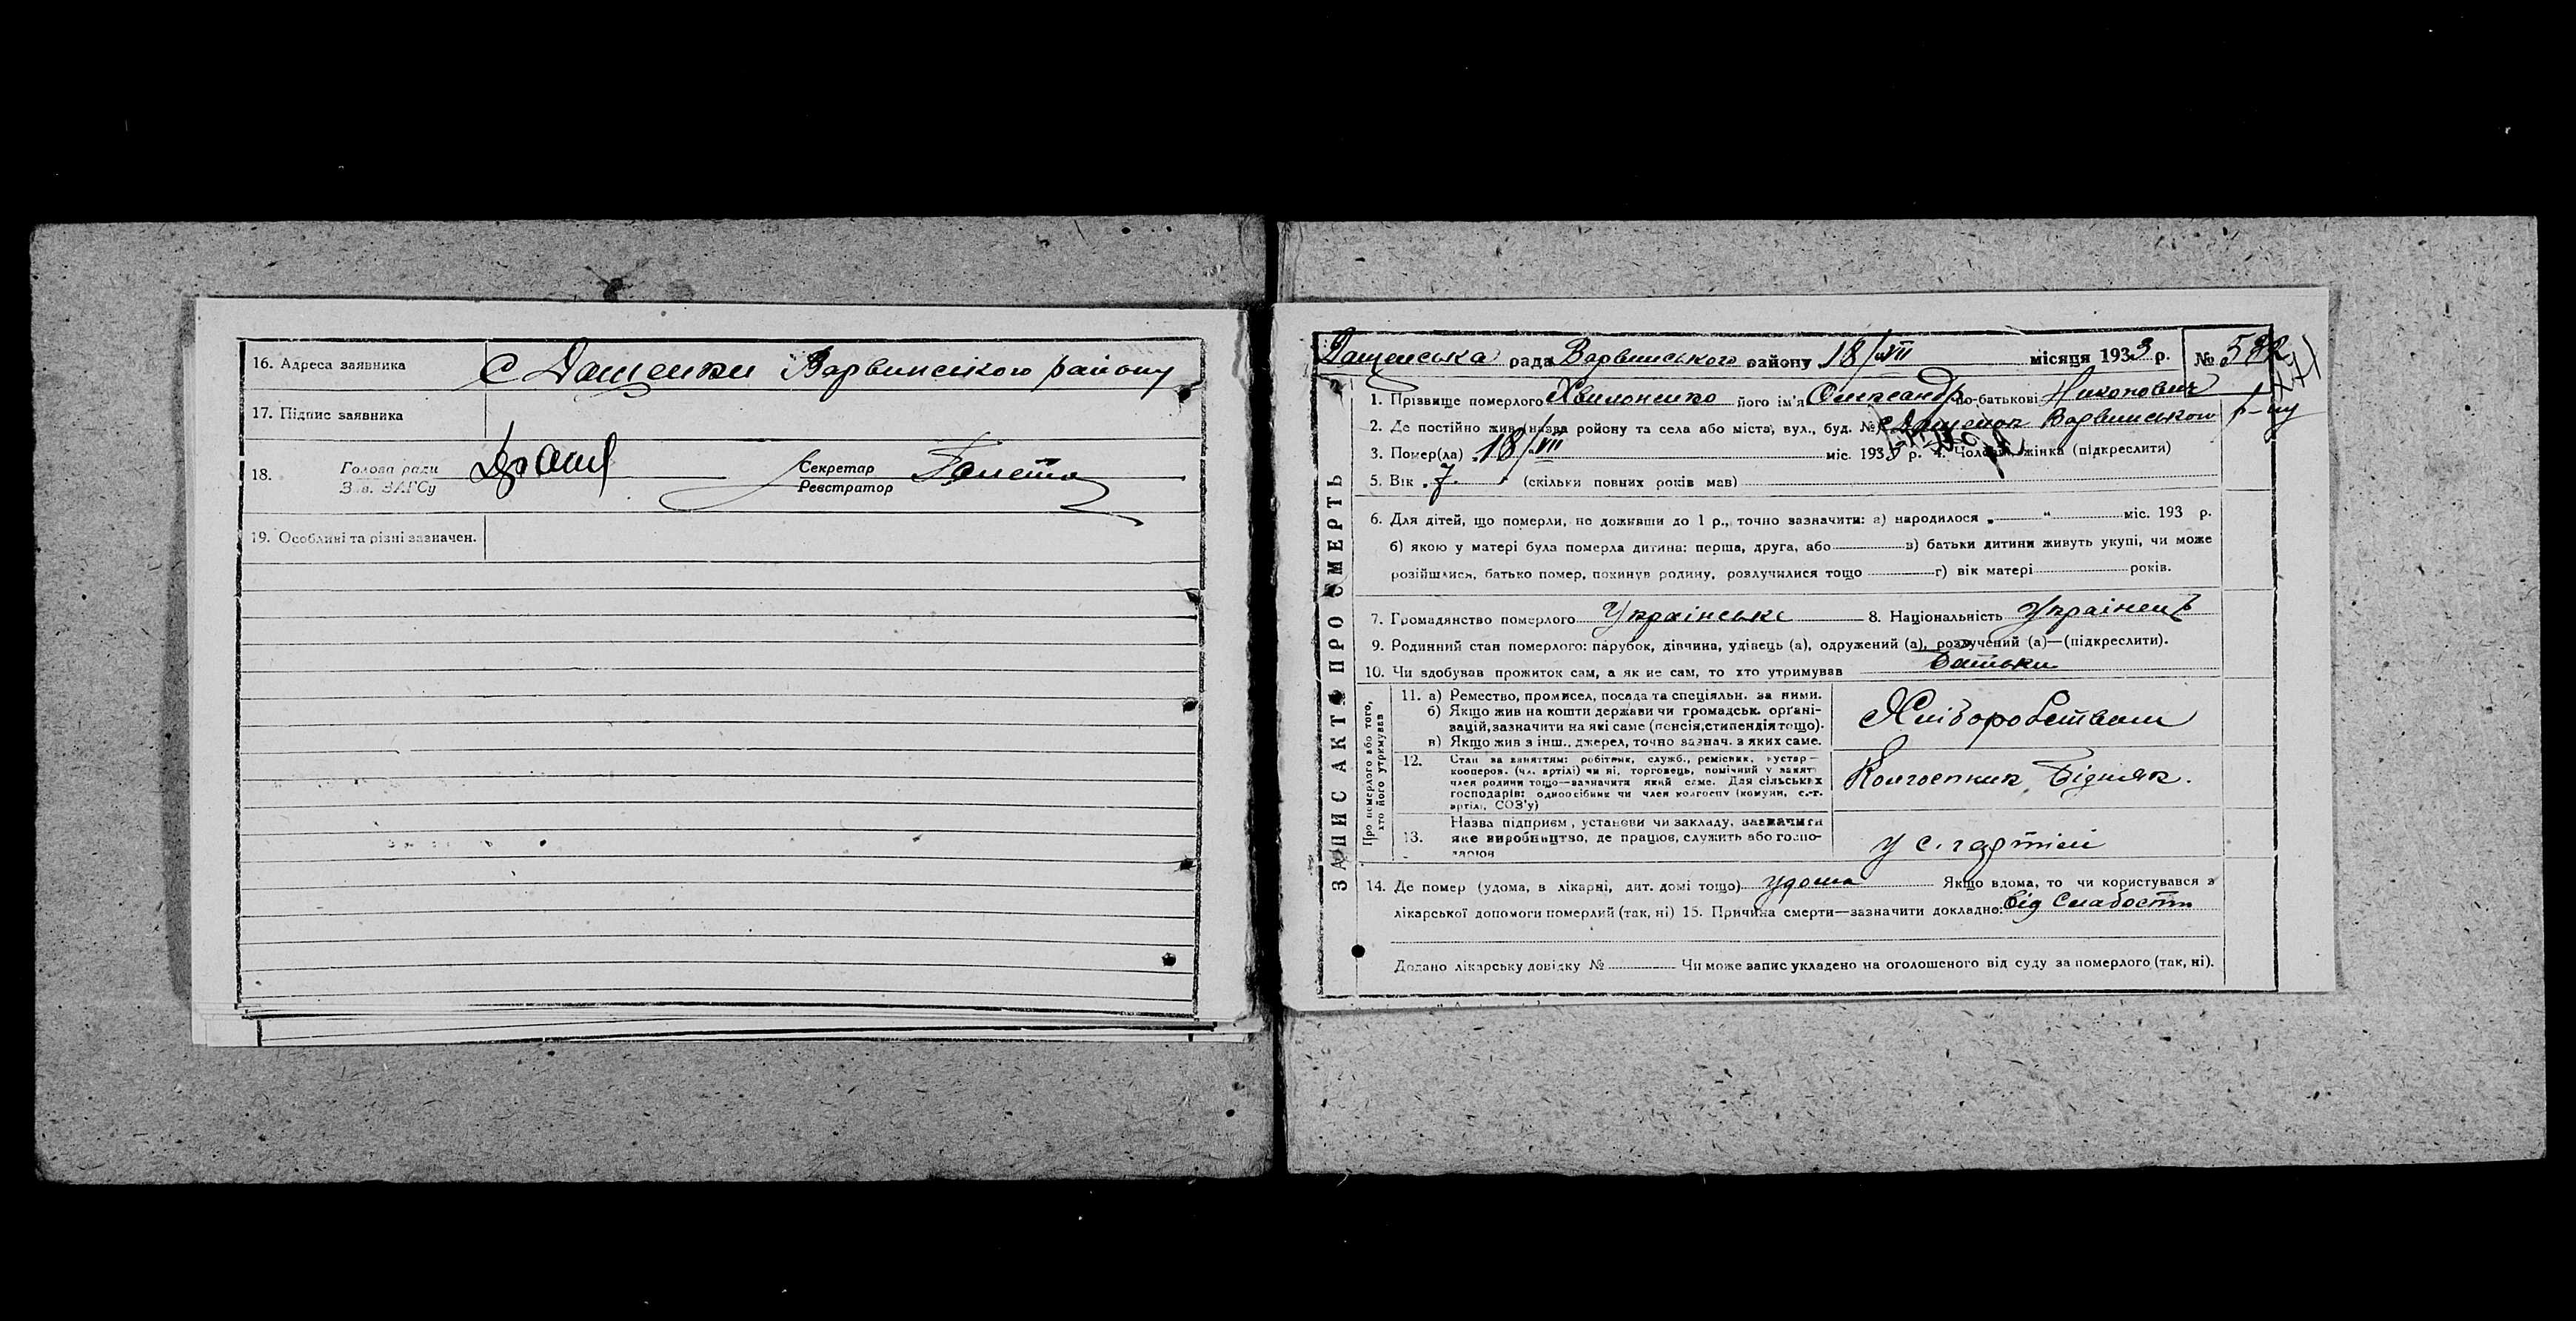 16. Адреса заявника С Дащенки Варвинського району
17. Підпис заявника
18. Голова ради Секретар
Зав. ЗАГСу Реєстратор
19. Особливі та різні зазначен.
ЗАПИС АКТУ ПРО СМЕРТЬ
Дащенська рада Варвинського району 18/VII місяця 1933 р. №
1. Прізвище померлого Хвилоненко його ім'я Олександр по-батькові Никонович
2. Де постійно жив (назва ройону та села або міста, вул., буд. №) с Дащенок Варвинського р-ну
3. Помер(ла) 18/VII міс. 1933 р. 4. Чоловік, жінка (підкреслити)
5. Вік 7 (скільки повних років мав)
6. Для дітей, що померли, не доживши до 1 р., точно зазначити: а) народилося „ “ міс. 193 р.
б) якою у матері була померла дитина: перша, друга, або в) батьки дитини живуть укупі, чи може
розійшлися, батько помер, покинув родину, розлучилися тощо г) вік матері років.
7. Громадянство померлого Українське 8. Національність Українець
9. Родинний стан померлого: парубок, дівчина, удівець (а), одружений (а), розлучений (а)—(підкреслити).
10. Чи здобував прожиток сам, а як не сам, то хто утримував батьки
Про померлого або того, хто його утримував
11. а) Ремество, промисел, посада та спеціяльн. за ними.
б) Якщо жив на кошти держави чи громадськ. органі-
зацій, зазначити на які саме (пенсія, стипендія тощо).
в) Якщо жив з інш. джерел, точно зазнач. з яких саме.
Хліборобством
12. Стан за заняттям: робітник, служб., ремісник, кустар—
кооперов. (чл. артілі) чи ні, торговець, помічний у занят.
член родини тощо—зазначити який саме. Для сільських
господарів: одноосібник чи член колгоспу (комуни, с.-г.
артілі, СОЗ'у)
Колгоспник, Бідняк.
13. Назва підприєм., установи чи закладу, зазначити
яке виробництво, де працює, служить або госпо-
дарює
у с. г артілі
14. Де помер (удома, в лікарні, дит. домі тощо) удома Якщо вдома, то чи користувався з
лікарської допомоги померлий (так, ні) 15. Причина смерти—зазначити докладно: від Слабости
Додано лікарську довідку № Чи може запис укладено на оголошеного від суду за померлого (так, ні).